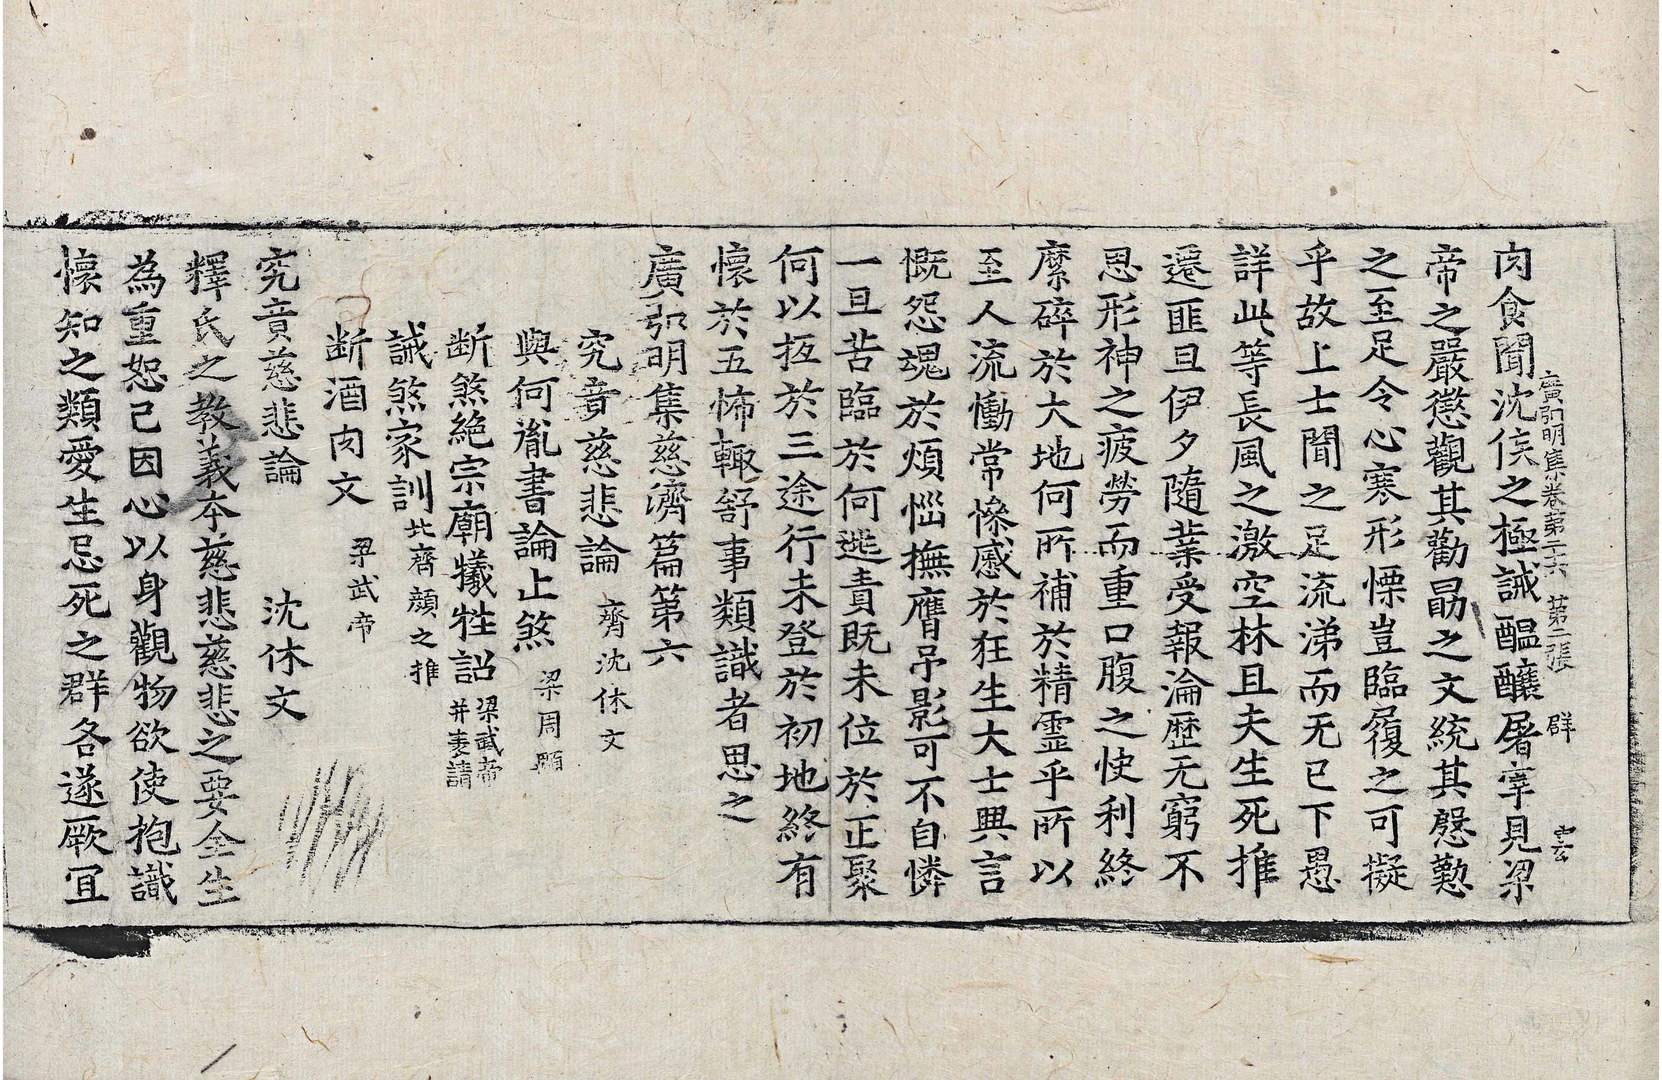 廣弘明集卷第二十六 第二張 群 雲
肉食聞沈侯之極誡醞釀屠宰見梁
帝之嚴懲觀其勸勗之文統其慇懃
之至足令心寒形慄豈臨履之可擬
乎故上士聞之足流涕而无已下愚
詳此等長風之激空林且夫生死推
遷匪旦伊夕隨業受報淪歷无窮不
思形神之疲勞而重口腹之快利終
縻碎於大地何所補於精靈乎所以
至人流慟常慘慼於狂生大士興言
慨怨魂於煩惱撫膺弔影可不自憐
一旦苦臨於何逃責既未位於正聚
何以抵於三途行未登於初地終有
懷於五怖輒舒事類識者思之
廣弘明集慈濟篇第六
究竟慈悲論 齊沈休文
與何胤書論止煞 梁周顒
断煞絕宗廟犧牲詔 梁武帝并表請
誡煞家訓 北齊顔之推
断酒肉文 梁武帝
究竟慈悲論 沈休文
釋氏之教義本慈悲慈悲之要全生
為重恕己因心以身觀物欲使抱識
懷知之類愛生忌死之群各遂厥宜